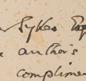 Sykes Esq
author's
complimen